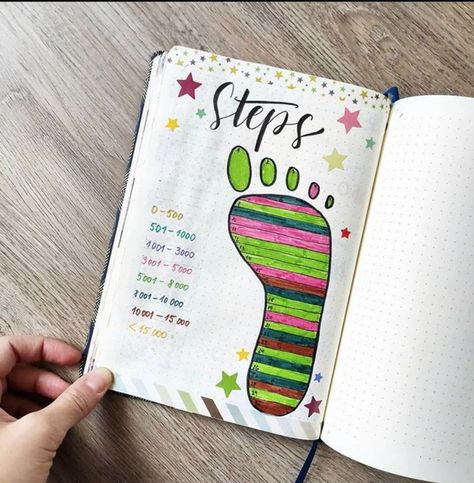 Steps
0-500
501-1000
1001-3000
3001-5000
5001-8000
8001-10000
10001-15000
<15000